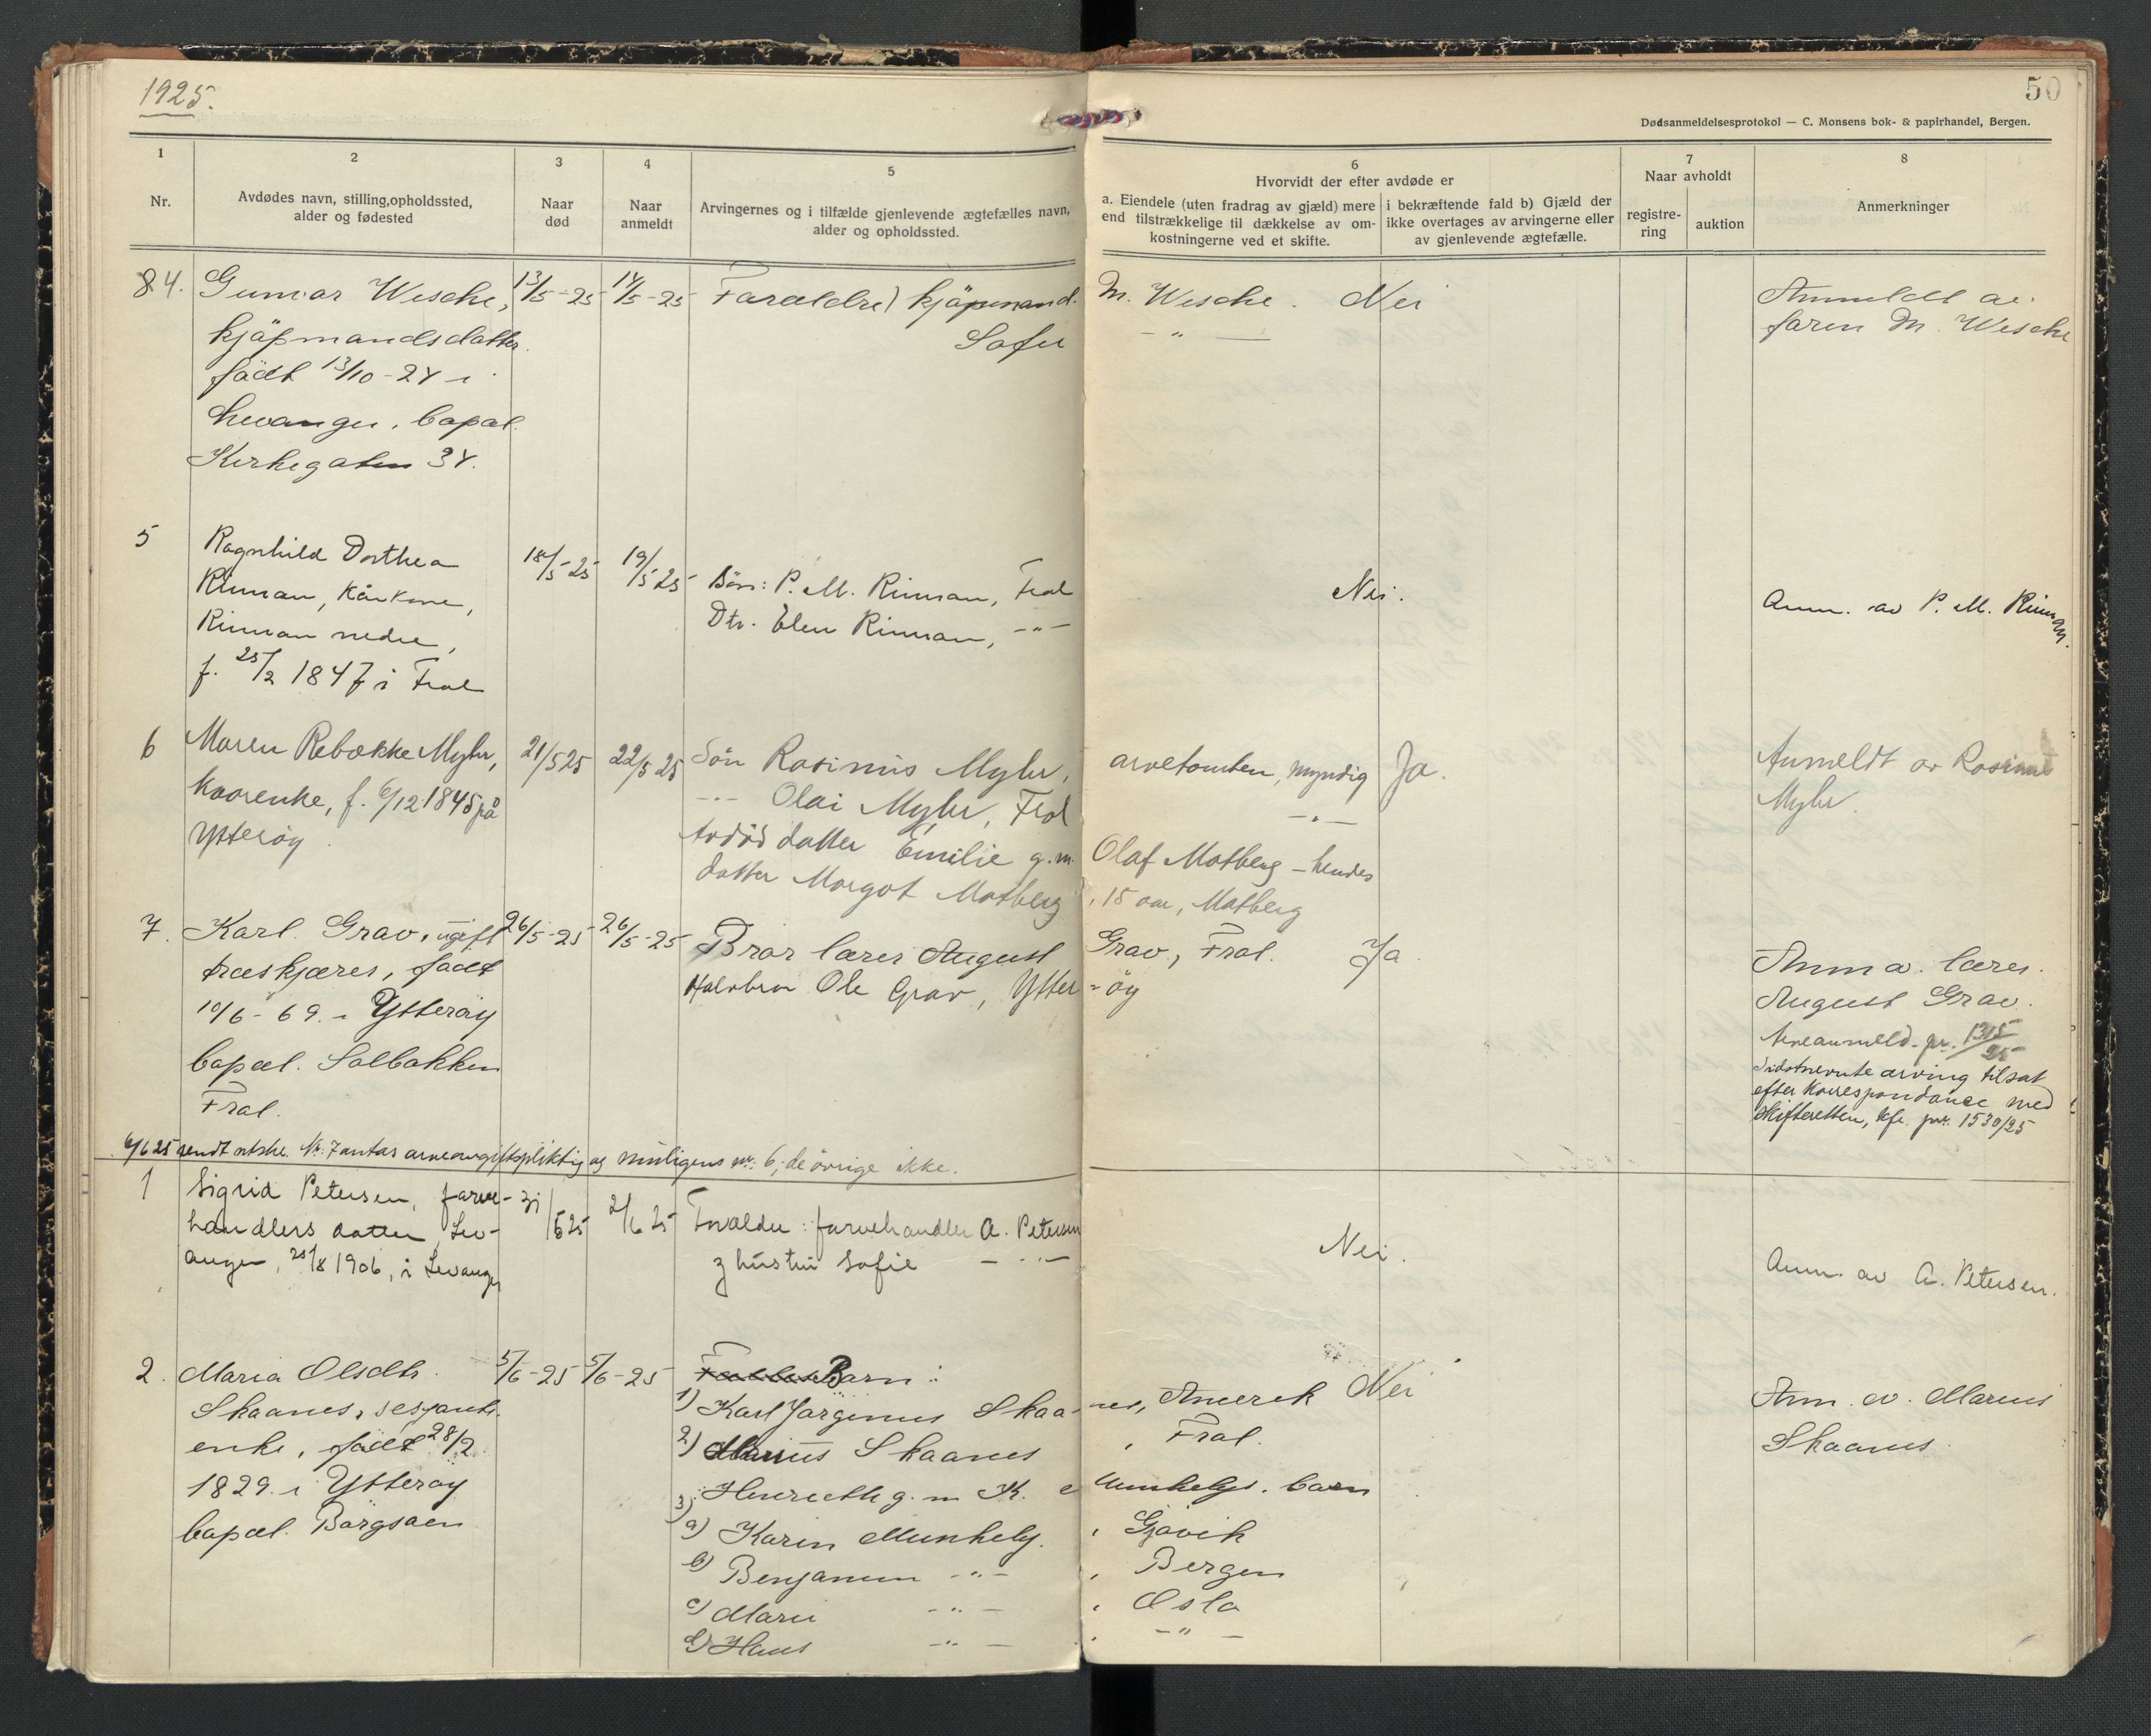 1925.
50
Dødsanmeldelsesprotokol — C. Monsens bok- & papirhandel, Bergen.
1
Nr.
2
Avdødes navn, stilling, opholdssted,
alder og fødested
3
Naar
død
4
Naar
anmeldt
5
Arvingernes og i tilfælde gjenlevende ægtefælles navn,
alder og opholdssted.
6
Hvorvidt der efter avdøde er
a. Eiendele (uten fradrag av gjæld) mere
end tilstrækkelige til dækkelse av om-
kostningerne ved et skifte.
i bekræftende fald b) Gjæld der
ikke overtages av arvingerne eller
av gjenlevende ægtefælle.
7
Naar avholdt
registre-
ring
auktion
8
Anmerkninger
84. Gunvor Wesche, 13/5-25 14/5-25 Forældre) kjøpmand. M. Wesche. Nei
kjøpmandsdatter. Sofie — " —
født 13/10-24 i
Levanger. bopæl.
Kirkegaten 34.
Anmeldt av
faren M. Wesche
5 Ragnhild Dorthea 18/5-25 19/5 25
Rinnan, Kårkone, Børn: P. M. Rinnan, Frol Nei.
Rinnan nedre, Dtr. Elen Rinnan, -"-
f. 25/2 1847 i Frol
Anm. av P. M. Rinnan.
6 Maren Rebekke Myhr, 21/5 25 22/5 25 Søn Rasinus Myhr, arvetomten, myndig Ja.
f. 6/12 1845 på -"- Olai Myhr, Frol -"-
Ytterøy. Avdød datter Emilie g. m. Olaf Motberg - hendes
datter Margot Motberg, 15 aar, Motberg
Anmeldt av Rasinus
Myhr.
7. Karl Grav, ugift 26/5-25 26/5-25 Bror lærer August Grav, Frol. Ja.
træskjærer, født Halvbror Ole Grav, Ytter-øy
10/6-69 i Ytterøy
bopæl. Solbakken
Frol.
Anm a. lærer.
August Grav.
Arveanmeld. jr. 1315/25
Sidstnevnte arving tilsat
efter Korrespondance med
Skifteretten, kfr. jnr. 1530/25
6/6 25 sendt utskr. Nr. 7 antas arveavgiftspliktig og muligens nr. 6; de øvrige ikke.
1 Sigrid Petersen, farve- 31/5 25 2/6 25 Forældre: farvehandler A. Petersen
handlers datter, Lev- g hustru Sofie — " — Nei.
anger, 25/8 1906, i Levanger
Anm. av A. Petersen.
2. Maria Olsdtr. 5/6-25 5/6-25 Barn:
Skaanes, 1) Karl Jørginus Skaanes, Amerik Nei
enke, født 28/2. 2) Marius Skaanes, Frol.
1829. i Ytterøy 3) g. m K. Munkelys. barn
bopæl. Borgsaen a) Karin Munkely. , Gjøvik
b) Benjamin -"- , Bergen
c) Marie -"- , Oslo
d) Hans -"- , -"-
Anm. av. Marius
Skaanes